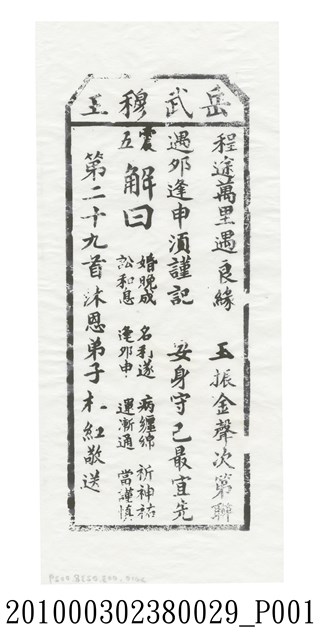 岳武穆王
程途萬里遇良緣　玉振金聲次第聯
遇夘逢申須謹記　安身守己最宜先
震五　解曰
婚晚成　名利遂　病纏綿　祈神祐
訟和息　逢夘申　運漸通　當謹慎
第二十九首沐恩弟子木紅敬送
201000302380029_P001